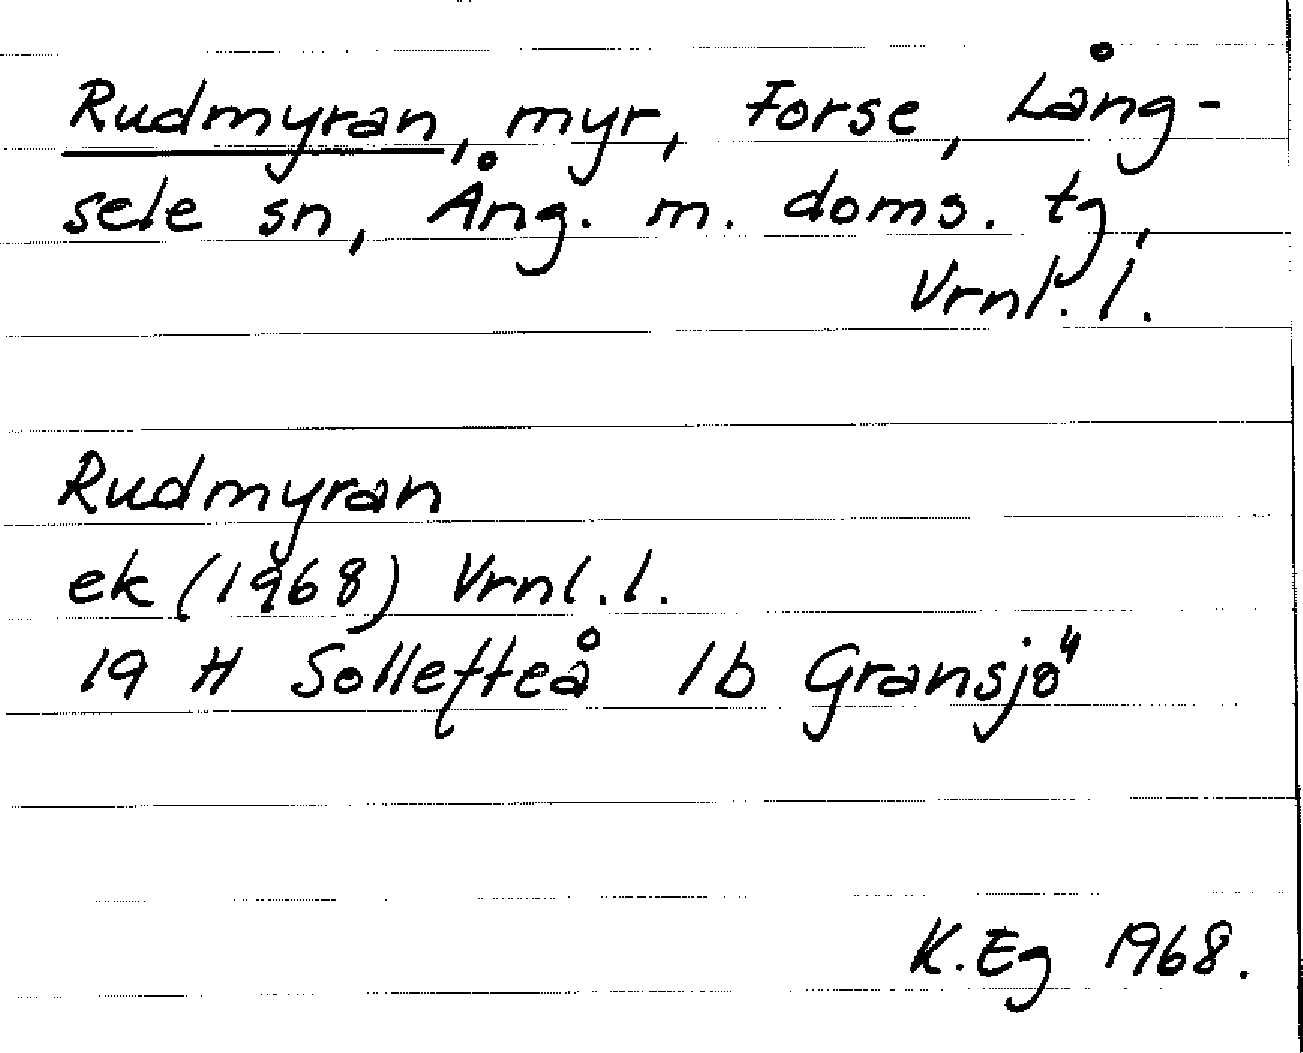 Rudmyran, myr, Forse, Lång-
sele sn, Ång. m. doms. tg,
Vrnl. l.
Rudmyran
ek (1968) Vrnl. l.
19 H Sollefteå 1b Gransjö
K. Eg 1968.